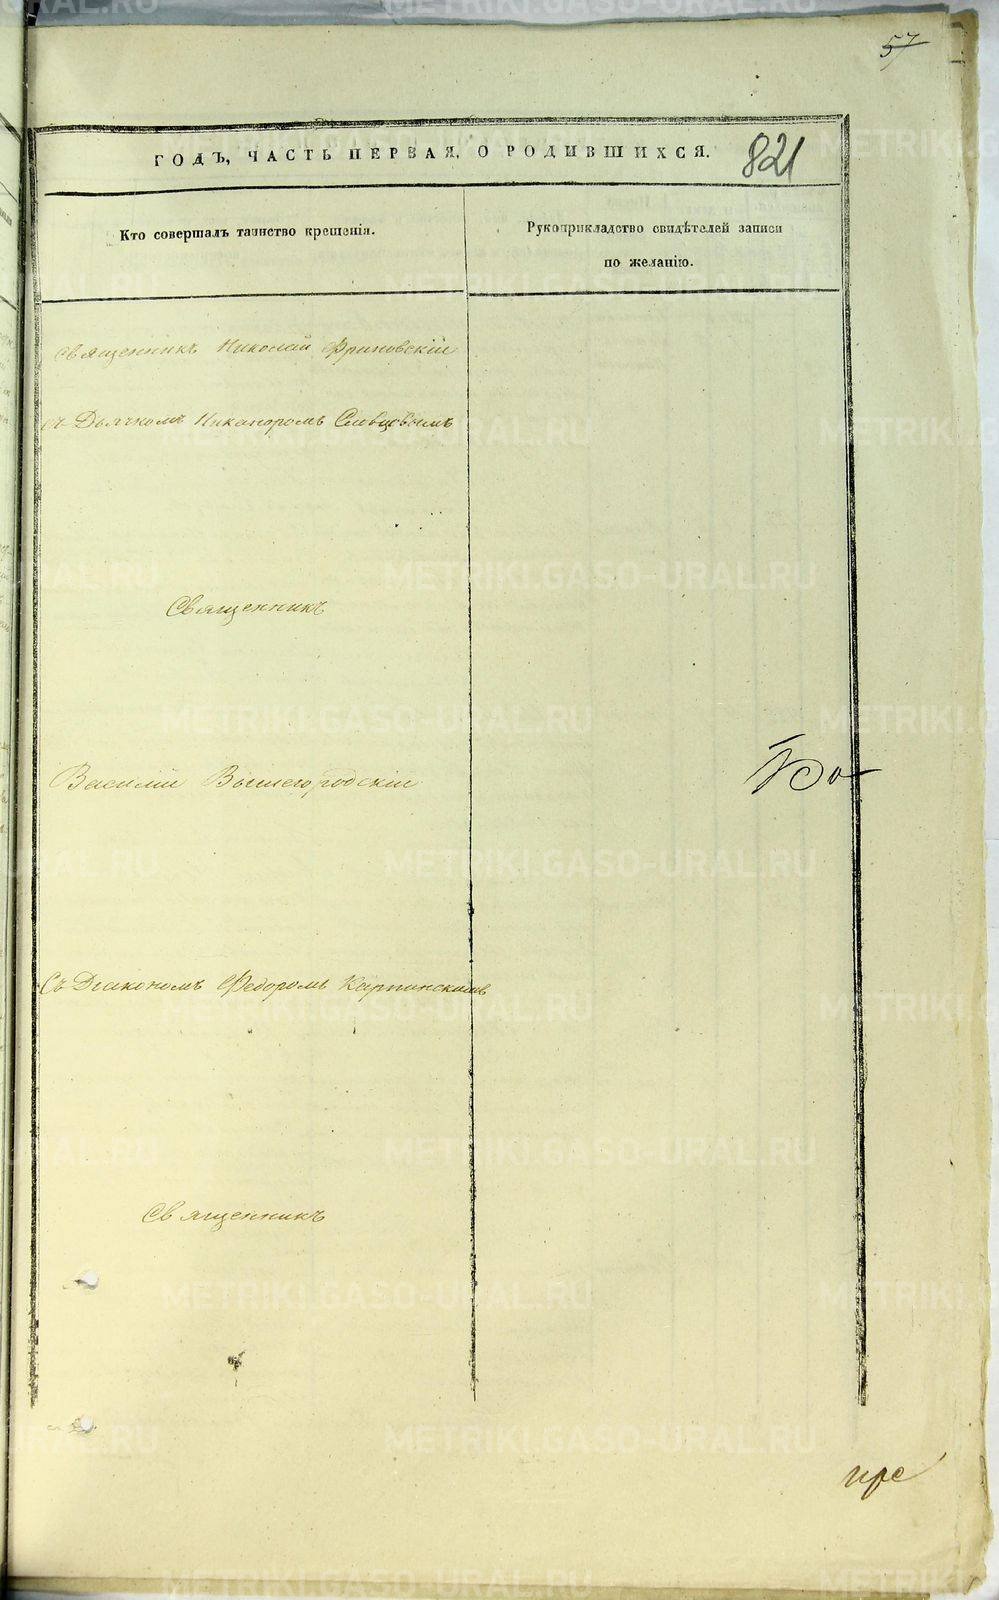 57
ГОДЪ, ЧАСТЬ ПЕРВАЯ, О РОДИВШИХСЯ.
821
Кто совершалъ таинство крещенія.
Рукоприкладство свидѣтелей записи
по желанію.
Священникъ Николай Фриновскій
съ Дьячкомъ Никаноромъ Словцовымъ
Священникъ
Василій Вышегородскій
Съ Діакономъ Федоромъ Карпинскимъ
Священникъ
METRIKI.GASO-URAL.RU